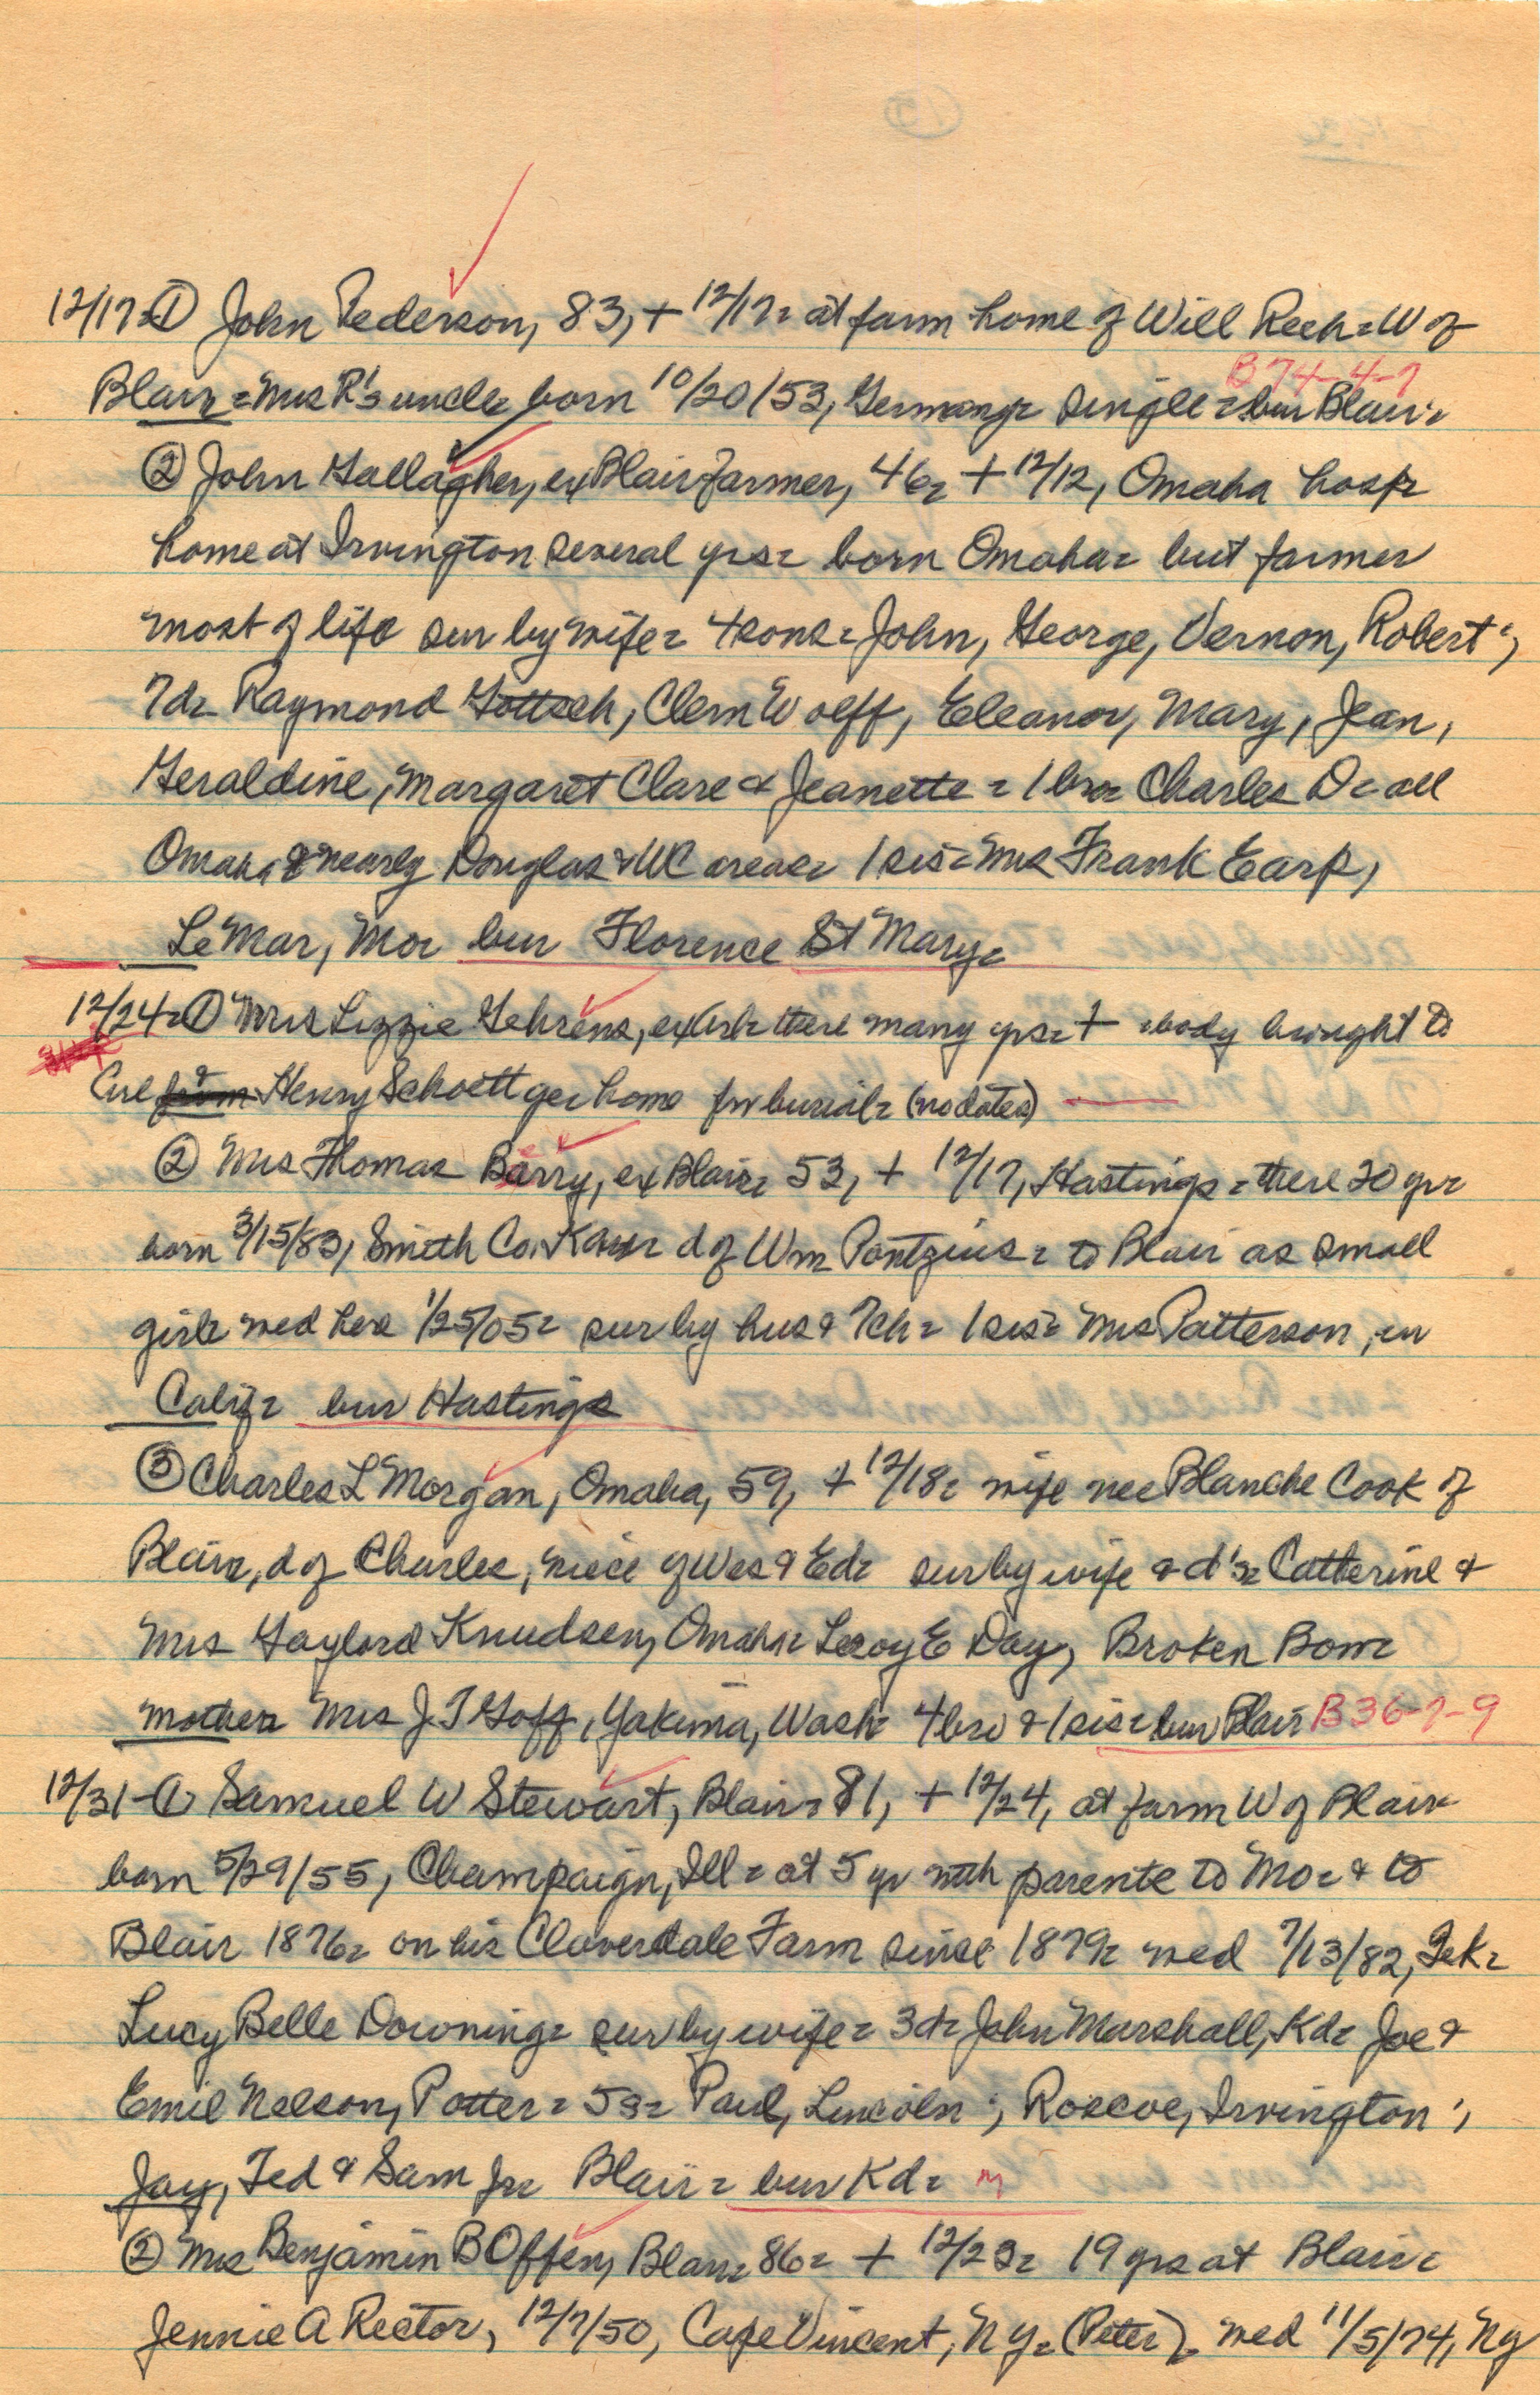 12/17=① John Pederson, 83, + 12/17= at farm home of Will Reeh=W of
Blair=Mrs R's uncle= born 10/20/53, Germany= single=bur Blair=
B 74-4-7
② John Gallagher, ex Blair farmer, 46= + 12/12, Omaha hosp=
home at Irvington several yrs= born Omaha= but farmer
most of life sur by wife= 4 sons=John, George, Vernon, Robert;
7d= Raymond Gottsch, Clem Wolff, Eleanor, Mary, Jean,
Geraldine, Margaret Clare & Jeanette = 1 bro= Charles D= all
Omaha & nearby Douglas & WC areas= 1 sis=Mrs Frank Earp,
LeMar, Mo= bur Florence St Mary=
12/24=① Mrs Lizzie Gehrens, ex there many yrs= + =body brought to
Henry Schoettger home for burial= (no dates)
② Mrs Thomas Barry, ex Blair= 53, + 12/17, Hastings=there 20 yr=
born 3/15/83, Smith Co. Kans= d of Wm Pontzius= to Blair as small
girl= med here 1/25/05= sur by hus & 7ch= 1 sis= Mrs Patterson, in
Calif= bur Hastings
③ Charles L Morgan, Omaha, 59, + 12/18= wife nee Blanche Cook of
Blair, d of Charles, niece of Wes & Ed= sur by wife & d's= Catherine &
Mrs Gaylord Knudsen, Omaha= Leroy E Day, Broken Bow=
mother Mrs J T Goff, Yakima, Wash= 4 bro & 1 sis= bur Blair B36-7-9
12/31-① Samuel W Stewart, Blair= 81, + 12/24, at farm W of Blair
born 5/29/55, Champaign, Ill= at 5 yr with parents to Mo= & to
Blair 1876= on his Cloverdale Farm since 1879= med 7/13/82, Tek=
Lucy Belle Downing= sur by wife= 3d= John Marshall, Kd= Joe &
Emil Nelson, Potter= 5s= Paul, Lincoln; Roscoe, Irvington;
Jay, Ted & Sam Jr= Blair= bur Kd= M
② Mrs Benjamin B Offen, Blair= 86= + 12/23= 19 yrs at Blair=
Jennie A Rector, 12/7/50, Cape Vincent, N Y= (Peter)= med 11/5/74, NY